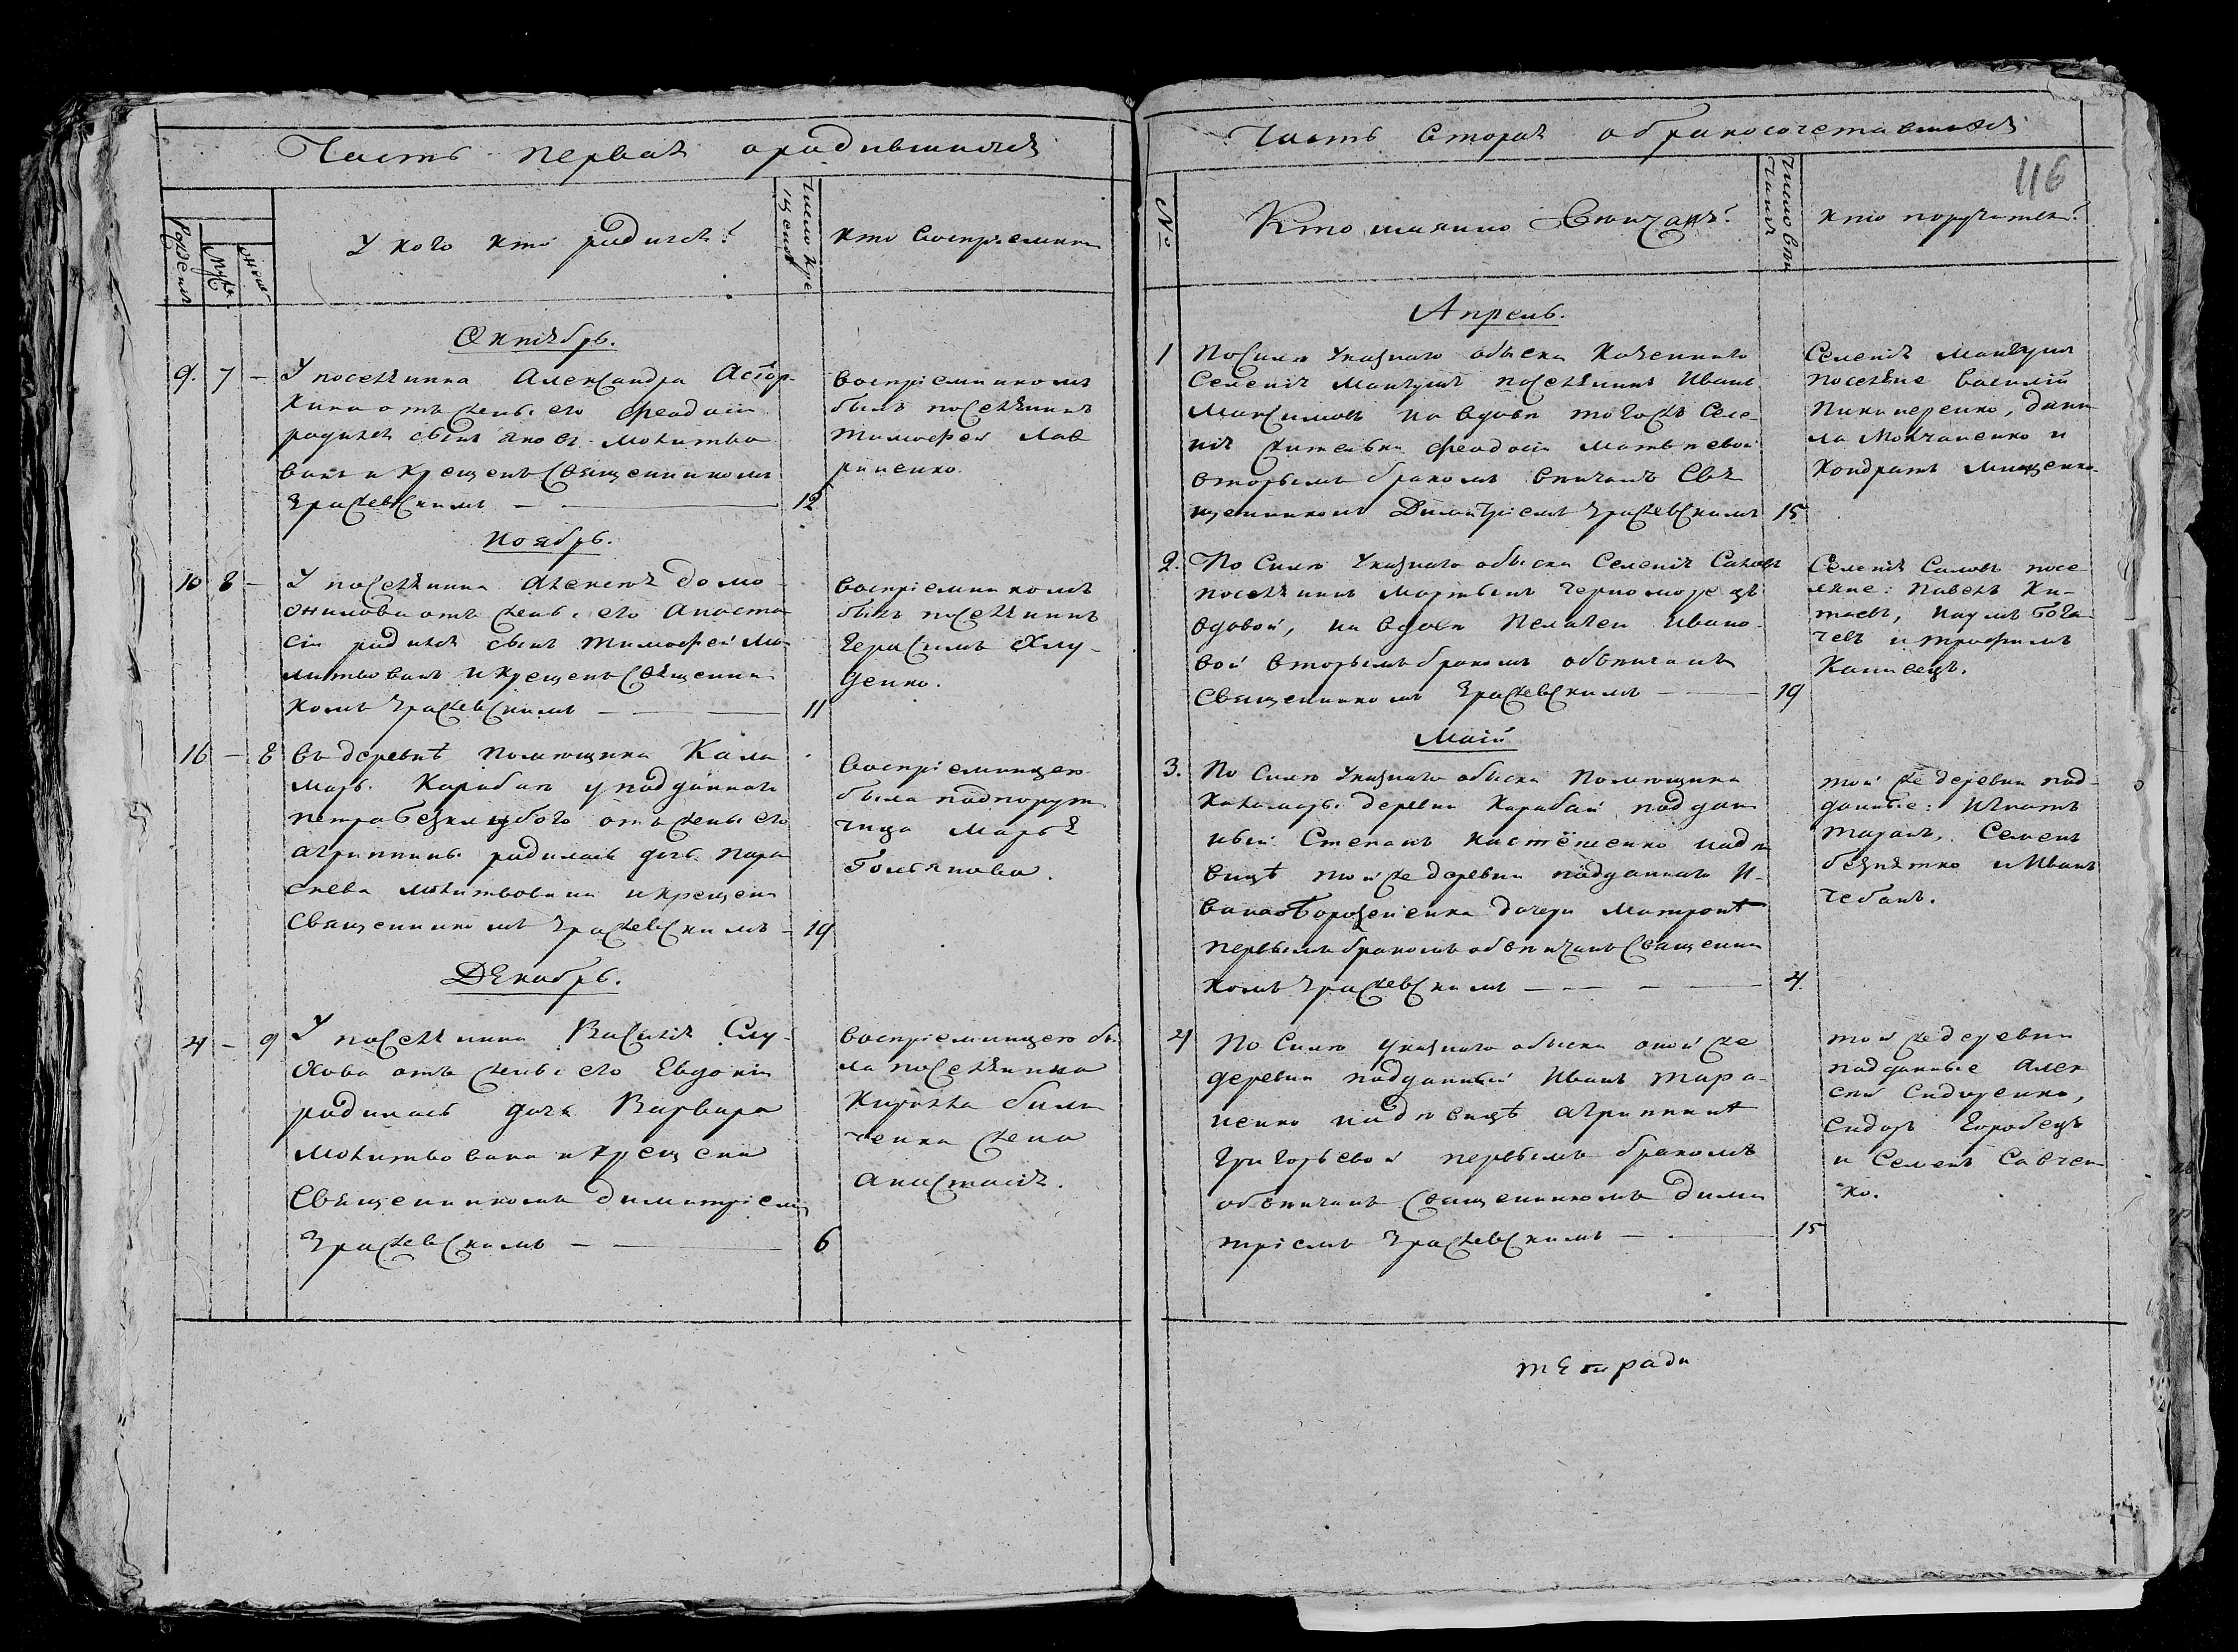 Часть первая о родившихся
Рожденія
Муж.
Жен.
У кого кто родился?
Число кре
щенія
Кто воспріемники
Октябрь.
9. 7 – У поселянина Александра
кина отъ жены его Феодосіи
родился сынъ Яковъ молитво
ванъ и крещенъ Священникомъ
Гражевскимъ — 12
воспріемникомъ
былъ поселянинъ
Тимофей Лав
риненко.
Ноябрь.
10 8 – У поселянина Алексѣя Домо
жилова отъ жены его Анаста
сіи родился сынъ Тимофей мо
литвованъ и крещенъ Священни
комъ Гражевскимъ — 11
воспріемникомъ
былъ поселянинъ
Герасимъ
денко.
16 – 8 въ деревнѣ помѣщика Кала
мары Карабаю у подданнаго
Петра отъ жены его
Агриппины родилась дочь Пара
скева молитвована и крещена
Священникомъ Гражевскимъ – 19
воспріемницею
была подпоручи
чица Марья
Гольянова.
Декабрь.
4 – 9 У поселянина Василія Слу
хова отъ жены его Евдокіи
родилась дочь Варвара
молитвована и крещена
Священникомъ Димитріемъ
Гражевскимъ — 6
воспріемницею бы
ла поселянина
Кирилла Били
ченка жена
Анастасія.
Часть вторая о бракосочетавшихся
116
№
Кто именно Вѣнчанъ?
Число вѣн
чанія
Кто поручители?
Апрель.
1 По силѣ указнаго обыска казеннаго
Селенія Мангуша поселянинъ Иванъ
Максимовъ на вдовѣ того жъ Селе
нія жительки Феодосіи Матвѣевой
вторымъ бракомъ вѣнчанъ Свя
щенникомъ Димитріемъ Гражевскимъ 15
Селенія Мангуша
поселяне Василій
Никипереико, Дани
ла Молчаненко и
Кондратъ Мищенко
2. По силѣ указнаго обыска Селенія Саловъ
поселянинъ Мартынъ Черноморецъ
вдовой, на вдовѣ Пелагеи Ивано
вой вторымъ бракомъ обвѣнчанъ
Священникомъ Гражевскимъ — 19
Селенія Саловъ посе
ляне: Павелъ Ки-
таевъ, Наумъ Бога
чевъ и Трофимъ
Каневецъ.
Маій
3. По силѣ указнаго обыска помѣщика
Каламары деревни Карабай поддан
ный Степанъ Кистёненко на дѣ
вицѣ той же деревни подданнаго И-
вана дочери Матронѣ
первымъ бракомъ обвѣнчанъ Священни
комъ Гражевскимъ — 4.
той же деревни под-
данные: Игнатъ
Таранъ, Семенъ
Безпятко и Иванъ
Чебанъ.
4 По силѣ указнаго обыска оной же
деревни подданный Иванъ Тара-
ненко на дѣвицѣ Агриппинѣ
Григорьевой первымъ бракомъ
обвѣнчанъ Священникомъ Дими
тріемъ Гражевскимъ — 15
той же деревни
подданные Алек
сѣй Сидоренко,
Сидоръ Горобецъ
и Семенъ Савчен
ко.
тетради